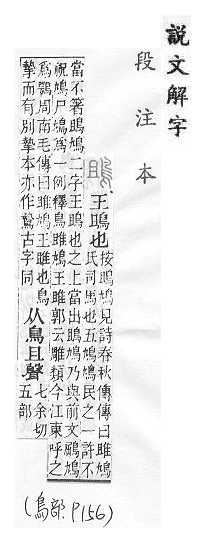 說文解字
段注本
王鴡也
按鴡鳩見詩春秋傳傳曰雎鳩
氏司馬也五鳩鳩民之一許不
當不著鴡鳩二字王鴡也之上當出鴡鳩乃與前文鶌鳩
祝鳩尸鳩爲一例釋鳥雎鳩王雎郭云雕類今江東呼之
爲鶚周南毛傳曰雎鳩王雎也鳥
摯而有別摯本亦作鷙古字同
从鳥且聲
七余切
五部
(鳥部. P156)